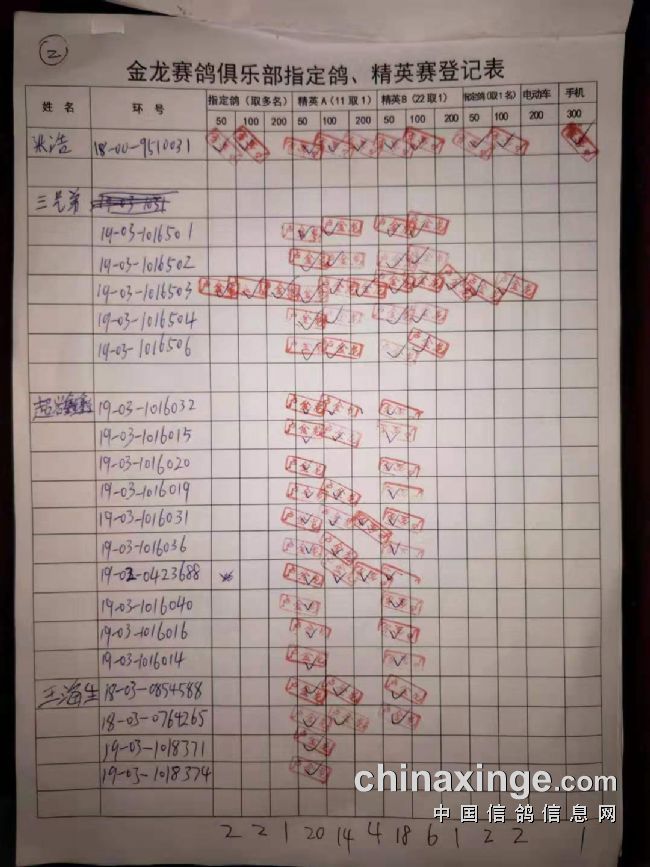 2
金龙赛鸽俱乐部指定鸽、精英赛登记表
姓 名 环 号 指定鸽（取多名） 精英A（11取1） 精英B（22取1） 指定鸽（取1名） 电动车 手机
50 100 200 50 100 200 50 100 200 50 100 200 300
浩 18-00-9510031
三兄弟
19-03-1016501
19-03-1016502
19-03-1016503
19-03-1016504
19-03-1016506
19-03-1016032
19-03-1016015
19-03-1016020
19-03-1016019
19-03-1016031
19-03-1016036
19-02-0423688
19-03-1016040
19-03-1016016
19-03-1016014
王海生 18-03-0854588
18-03-0764265
19-03-1018371
19-03-1018374
chinaxinge.com
中国信鸽信息网
2 2 1 20 14 4 18 6 1 2 2 1